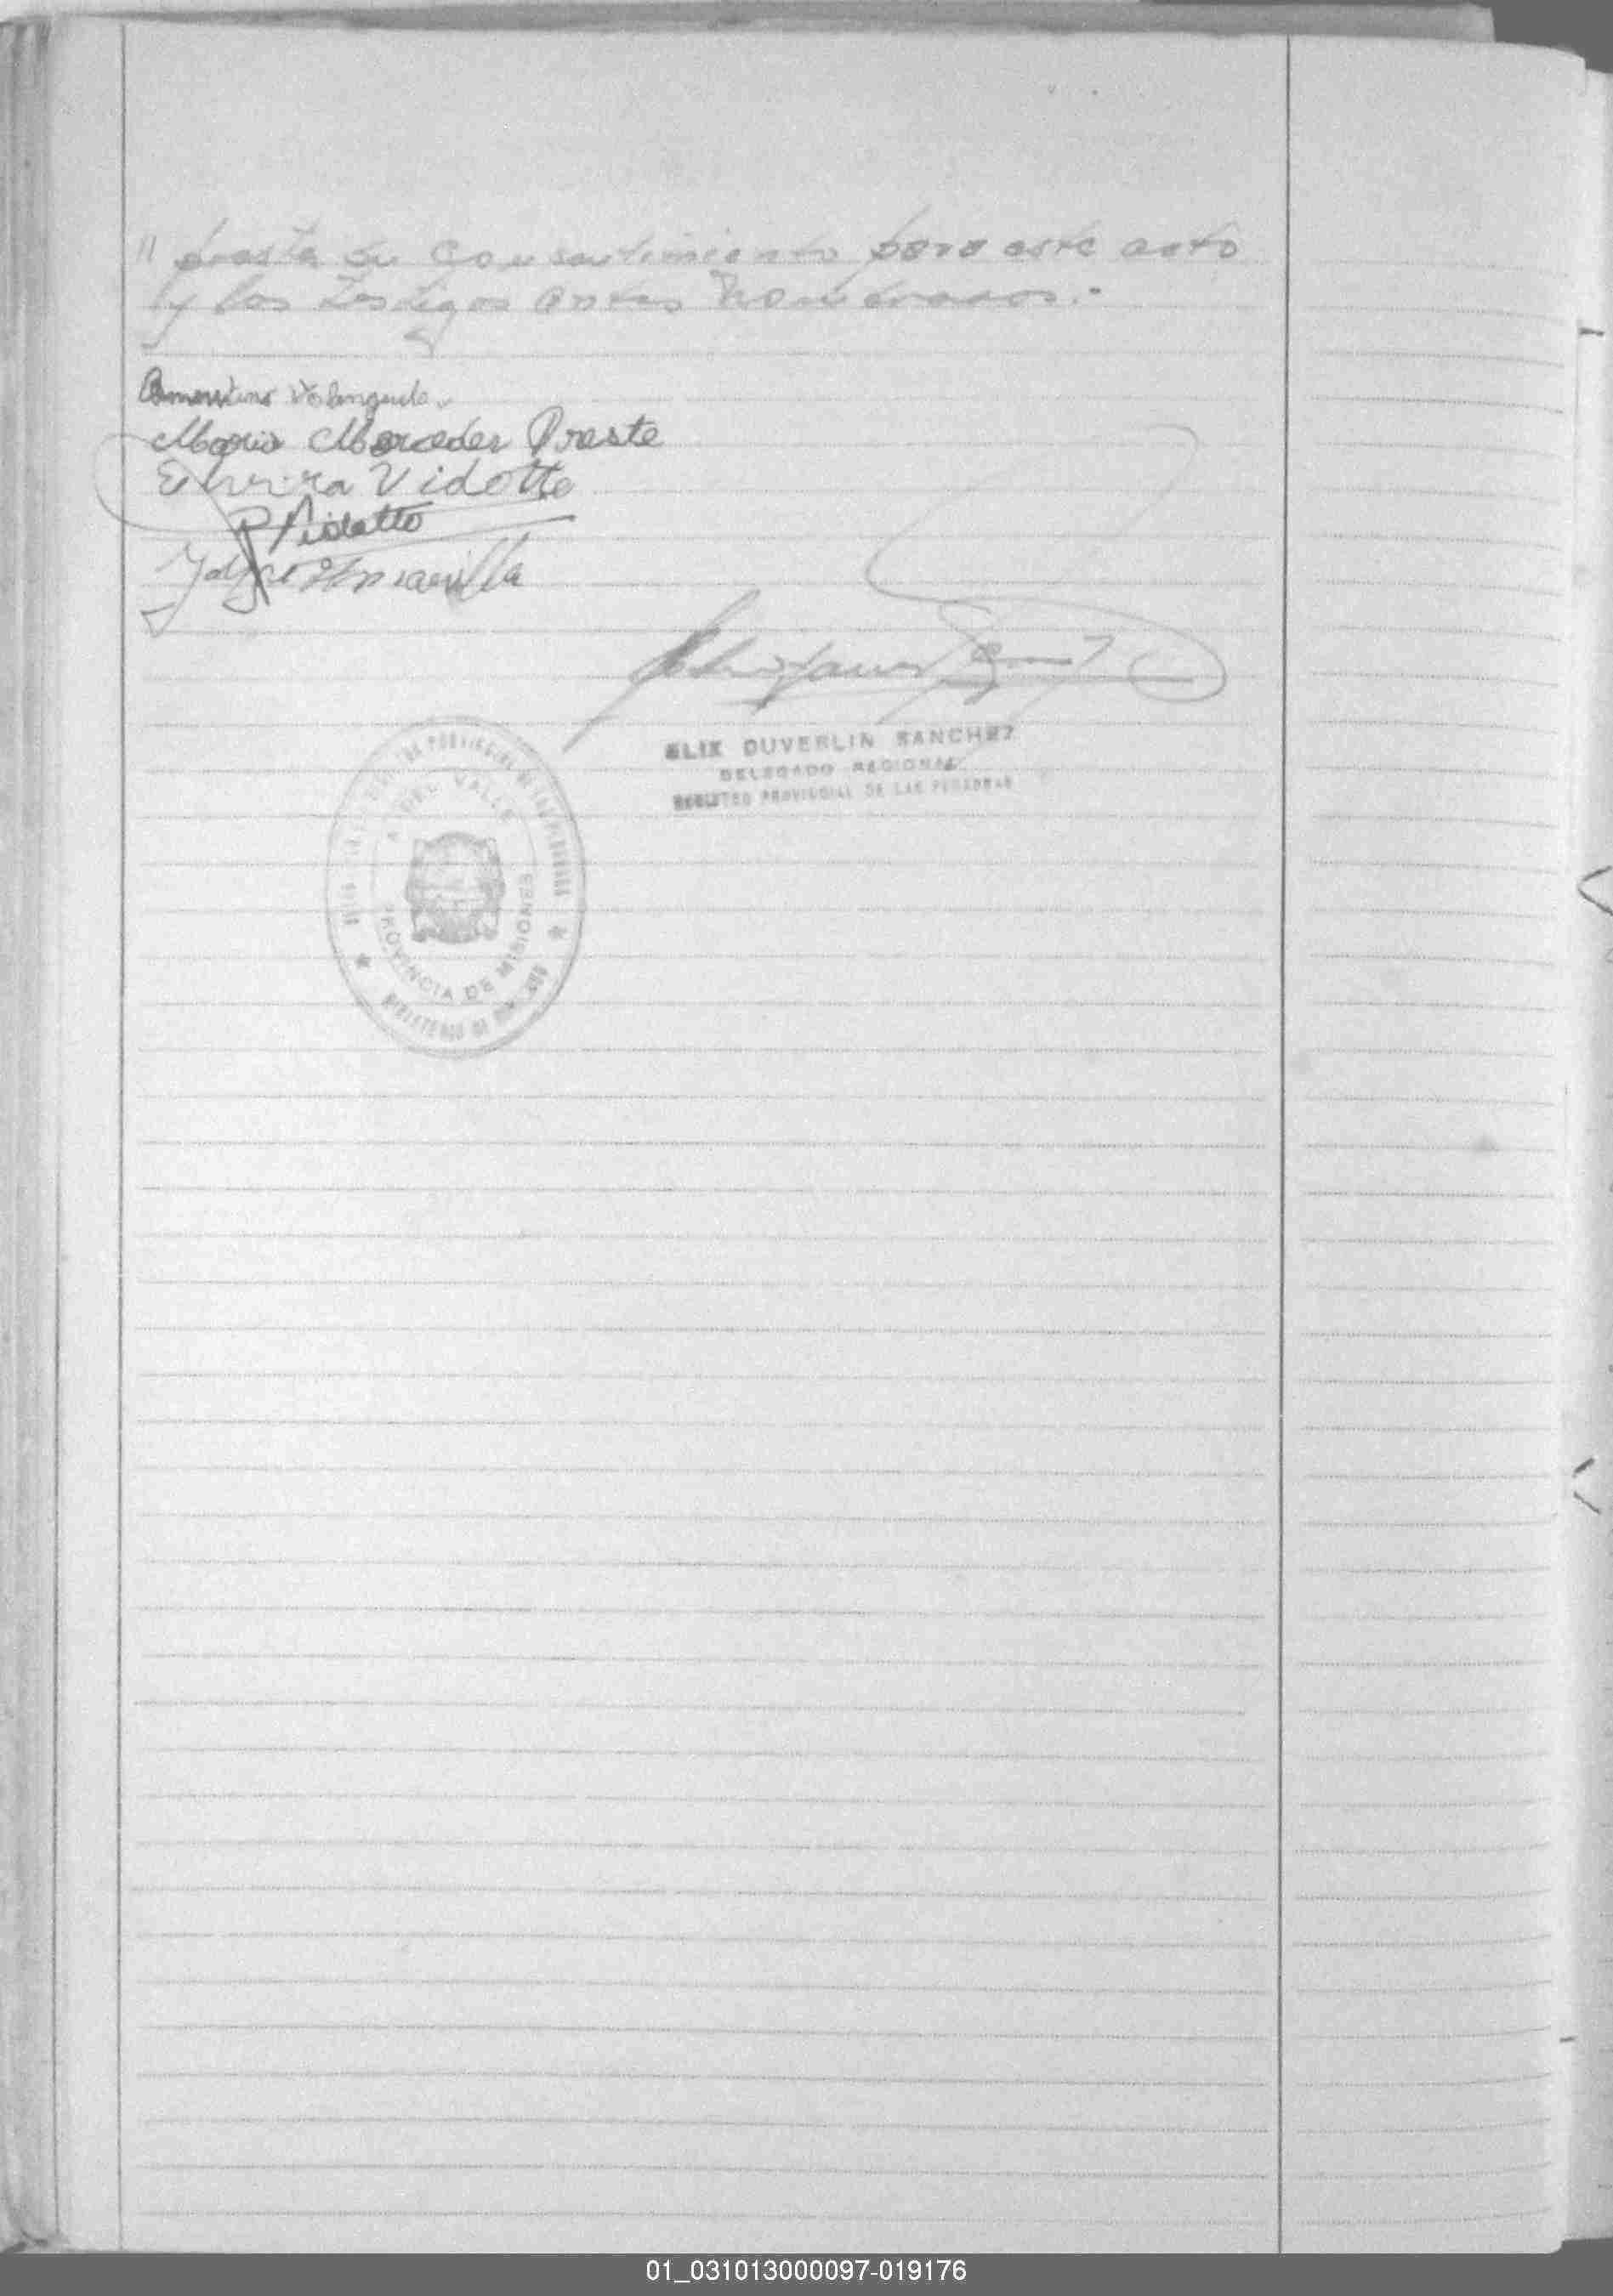 " presta su consentimiento para este acto
y los testigos antes nombrados.-
Maria Mercedes Preste
Elvira Vidotto
P Vidotto
ELIX DUVERLIN SANCHEZ
DELEGADO REGIONAL
REGISTRO PROVINCIAL DE LAS PERSONAS
PROVINCIAL DE LAS PERSONAS
DEL VALLE
PROVINCIA DE MISIONES
MINISTERIO DE
01_031013000097-019176